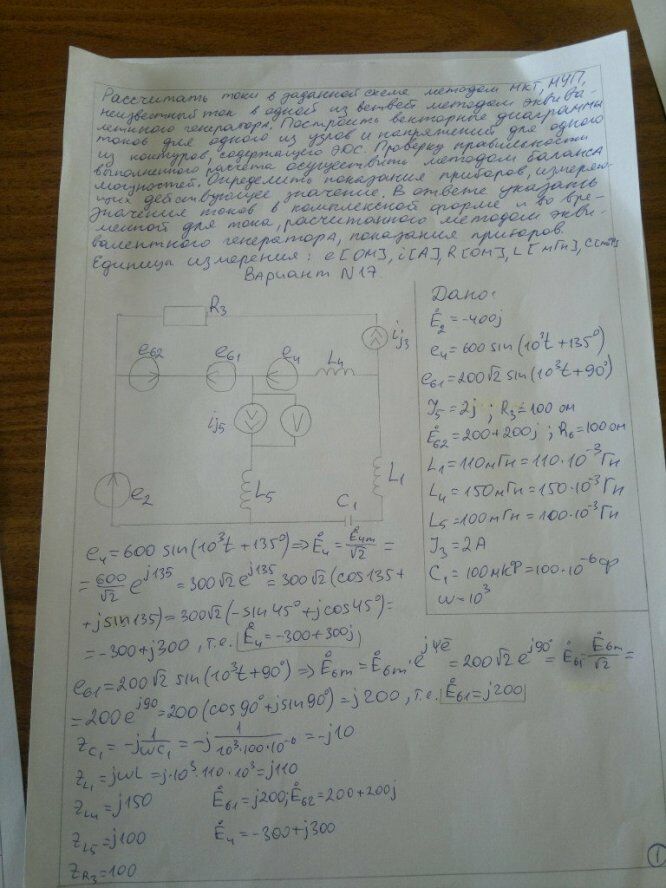 Рассчитать токи в заданной схеме методом МКТ, МУП,
неизвестный ток в одной из ветвей методом эквива-
лентного генератора. Построить векторные диаграммы
токов для одного из узлов и напряжений для одного
из контуров, содержащего ЭДС. Проверку правильности
выполненного расчета осуществить методом баланса
мощностей. Определить показания приборов, измеряю-
щих действующее значение. В ответе указать
значения токов в комплексной форме и во вре-
менной для тока, рассчитанного методом экви-
валентного генератора, показания приборов.
Единицы измерения: e[ОМ], i[А], R[ОМ], L[мГн],
Вариант N17.
R3
e62
e61
e4
L4
ij3
ij5
V
e2
L5
C1
L1
Дано:
Ė2=-400j
e4=600 sin(10³t+135°)
e61=200√2 sin(10³t+90°)
J5=2j ; R3=100 ом
Ė62=200+200j ; R6=100 ом
L1=110мГн=110·10⁻³Гн
L4=150мГн=150·10⁻³Гн
L5=100мГн=100·10⁻³Гн
J3=2А
C1=100мкФ=100·10⁻⁶ф
ω=10³
e4=600 sin(10³t+135°)⇒Ė4=Ė4m/√2=
=600/√2 e^j135=300√2 e^j135=300√2(cos135+
+jsin135)=300√2(-sin45°+jcos45°)=
=-300+j300, т.е. Ė4=-300+300j
e61=200√2 sin(10³t+90°)⇒Ė6m=Ė6m·e^jψe=200√2 e^j90°=Ė61=Ė6m/√2=
=200e^j90=200(cos90°+jsin90°)=j200, т.е. Ė61=j200
zC1=-j1/ωC1=-j1/10³·100·10⁻⁶=-j10
zL1=jωL=j·10³·110·10³=j110
zL4=j150 Ė61=j200; Ė62=200+200j
zL5=j100 Ė4=-300+j300
zR3=100
1